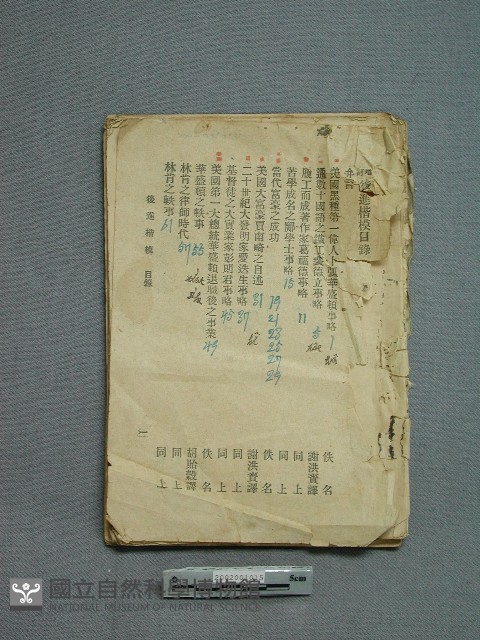 後進楷模目錄
弁言
美國黑種第一偉人卜彊華盛頓事略 1 佚名
通數十國語之鐵工裴德立事略 5 謝洪賚譯
履工而成著作家葛福德事略 11 同上
苦學成名之鄺學士事略 15 同上
當代富豪之成功 19 21 23 25 27 29 佚名
美國大富豪賈南崎之自述 31 謝洪賚譯
二十世紀大發明家愛迭生事略 37 同上
基督徒之大實業家彭明君事略 45 同上
美國第一大總統華盛頓退職後之事業 49 佚名
華盛頓之軼事 53 胡貽穀譯
林肯之律師時代 57 同上
林肯之軼事 61 同上
後進楷模 目錄 一
2002001015
5cm
國立自然科學博物館
NATIONAL MUSEUM OF NATURAL SCIENCE